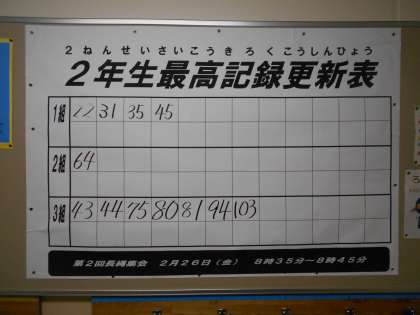 ２ねんせいさいこうきろくこうしんひょう
２年生最高記録更新表
1組 22 31 35 45
2組 64
3組 43 44 75 80 81 94 103
第２回長縄集会　２月２６日（金）　８時３５分～８時４５分